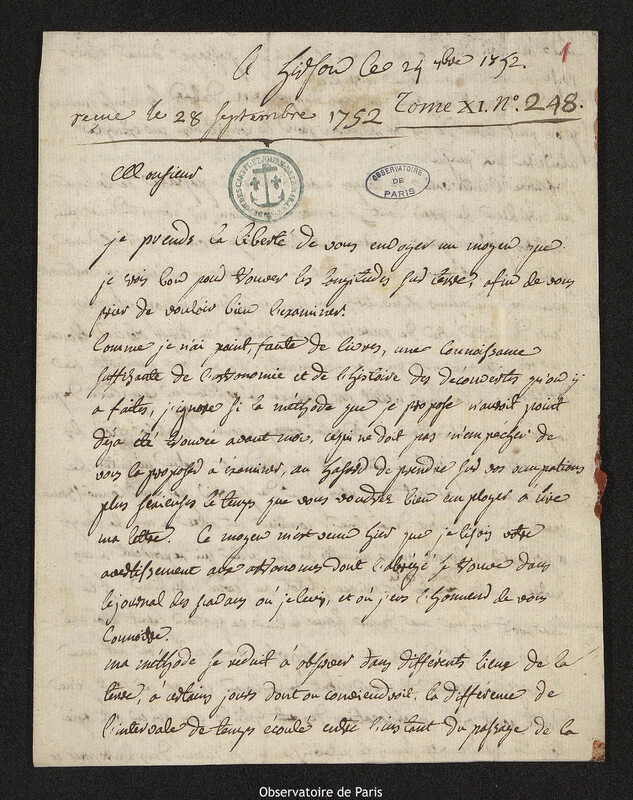 1
le 24 7bre 1752.
reçue le 28 septembre 1752 Tome XI. N.º 248.
Monsieur
OBSERVATOIRE
DE
PARIS
je prends la liberté de vous envoyer un moyen que
je crois bon pour trouver les longitudes sur terre, afin de vous
prier de vouloir bien l'examiner.
Comme je n'ai point, faute de livres, une connaissance
suffisante de l'astronomie et de l'histoire des decouvertes qu'on y
a faites, j'ignore si la methode que je propose n'auroit point
déja été trouvée avant moi, ce qui ne doit pas m'empecher de
vous la proposer à examiner, au hasard de prendre sur vos occupations
plus serieuses le temps que vous voudrez bien employer a lire
ma lettre. Ce moyen m'est venu hier que je lisois votre
avertissement aux astronomes dont l'abrégé se trouve dans
le journal des savans où je leus, et où j'eus l'honneur de vous
connoitre.
ma méthode se reduit à observer dans differents lieux de la
terre, à certains jours dont on conviendroit, la difference de
l'intervale de temps écoulé entre l'instant du passage de la
Observatoire de Paris